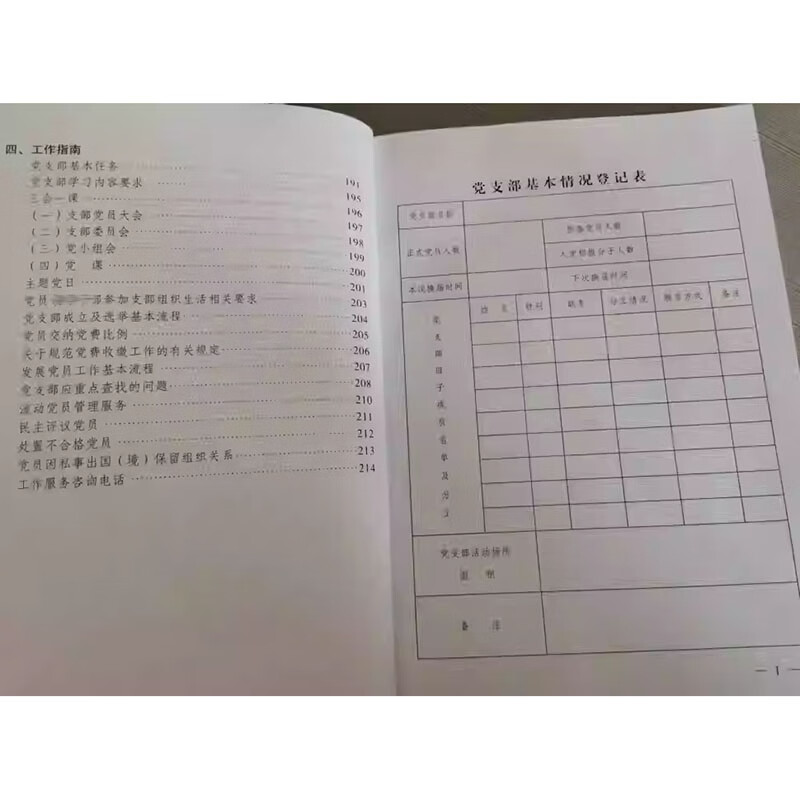 四、工作指南
党支部基本任务 191
党支部学习内容要求 195
三会一课 196
（一）支部党员大会 197
（二）支部委员会 198
（三）党小组会 199
（四）党 课 200
主题党日 201
党员 部参加支部组织生活相关要求 203
党支部成立及选举基本流程 204
党员交纳党费比例 205
关于规范党费收缴工作的有关规定 206
发展党员工作基本流程 207
党支部应重点查找的问题 208
流动党员管理服务 210
民主评议党员 211
处置不合格党员 212
党员因私事出国（境）保留组织关系 213
工作服务咨询电话 214
党支部基本情况登记表
党支部名称
预备党员人数
正式党员人数
入党积极分子人数
本次换届时间
下次换届时间
姓 名 性别 职务 分工情况 联系方式 备注
党支部班子成员名单及分工
党支部活动场所
面 积
备 注
— 1 —